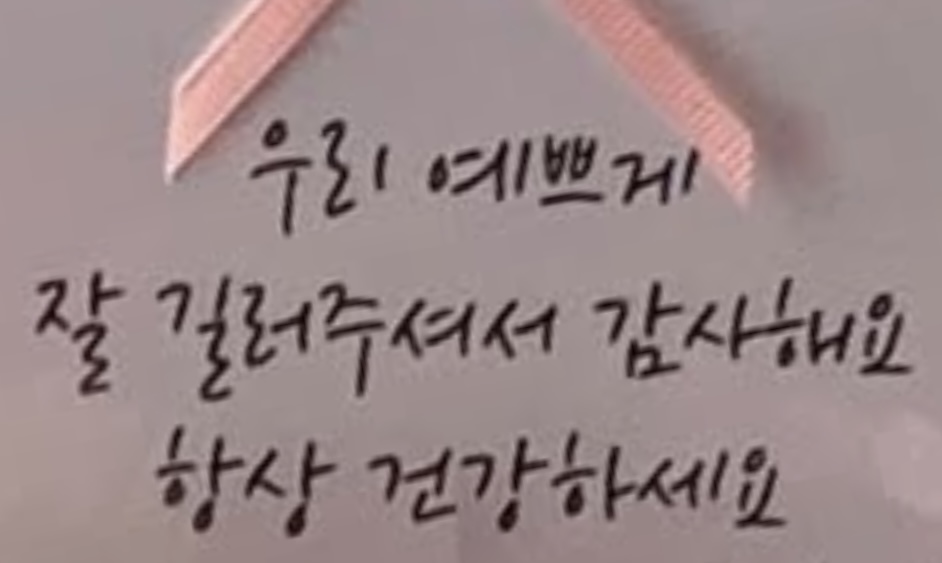 우리 예쁘게
잘 길러주셔서 감사해요
항상 건강하세요